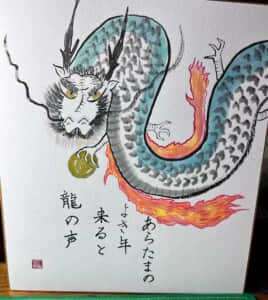 あらたまの
よき年
来ると
龍の声